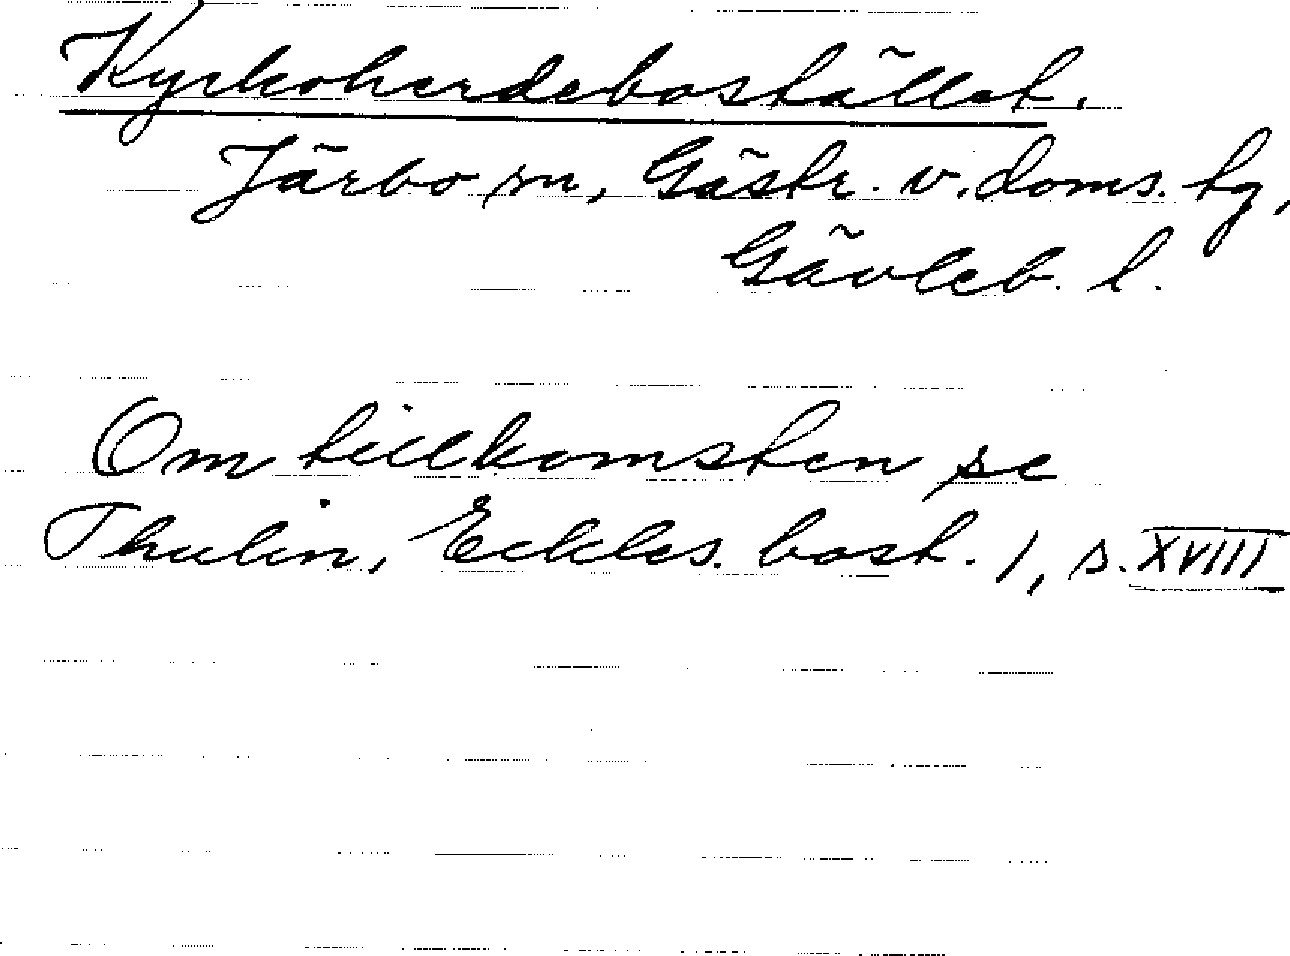 Kyrkoherdebostället.
Järbo sn, Gästr. v. doms. tg,
Gävleb. l.
Om tillkomsten se
Thulin, Eckles. bost. 1, s. XVIII